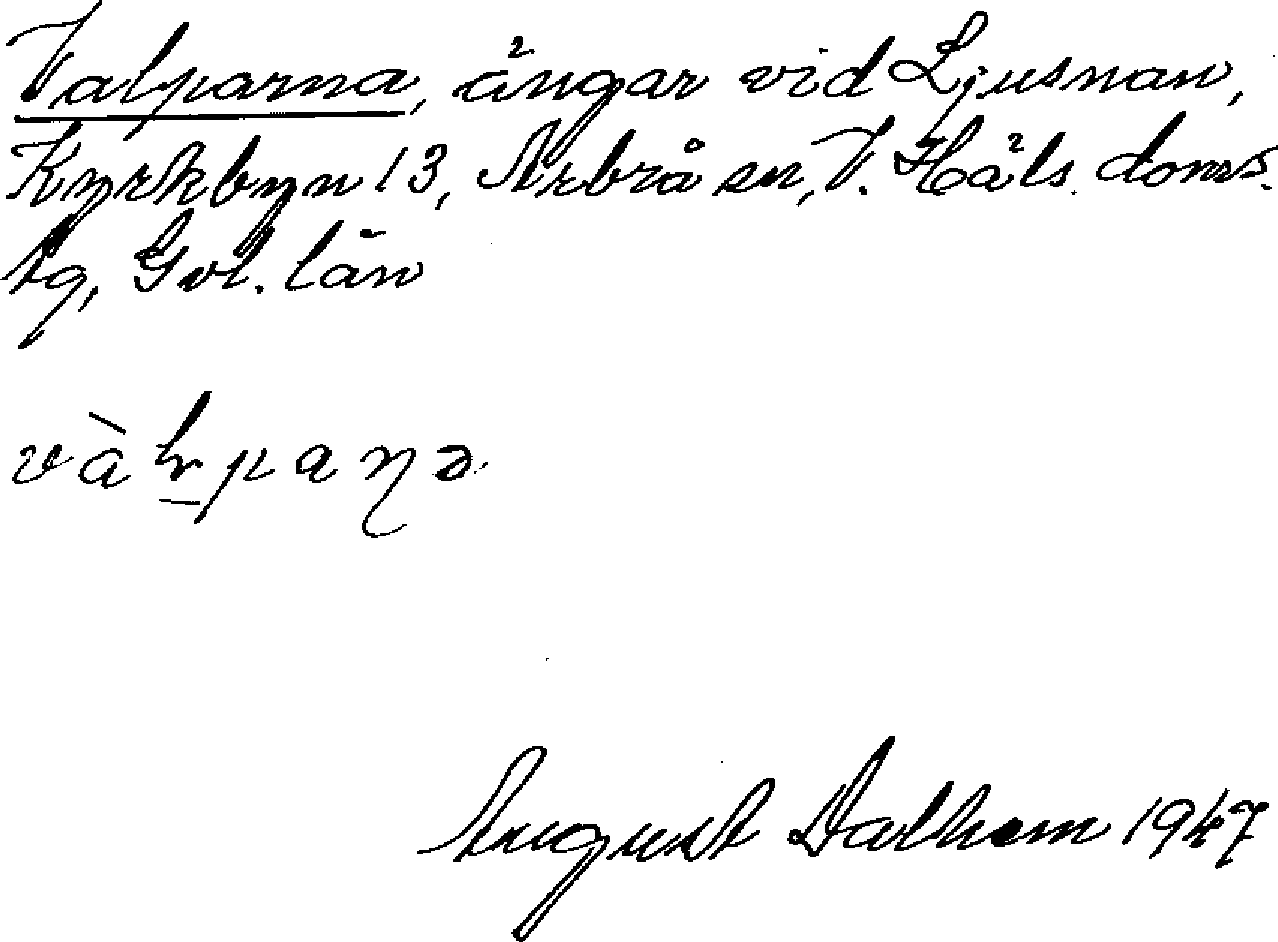 Valparna, ängar vid Ljusnan,
Kyrkbyn 13, Arbrå sn, V. Häls. doms.
tg, Gvl. län
vàl̠paṇə
August Dalhem 1947